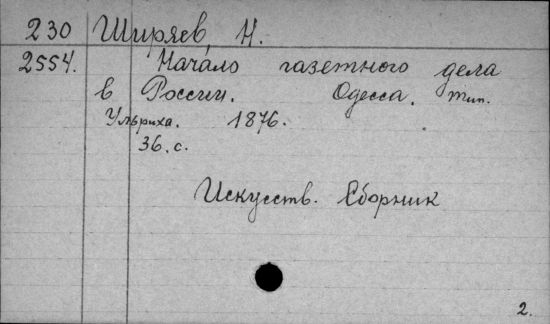 230 Ширяев Н.
2554. Начало газетного дела
в России. Одесса. тип.
Ульриха. 1876.
36. с.
Искусств. Сборник
2.